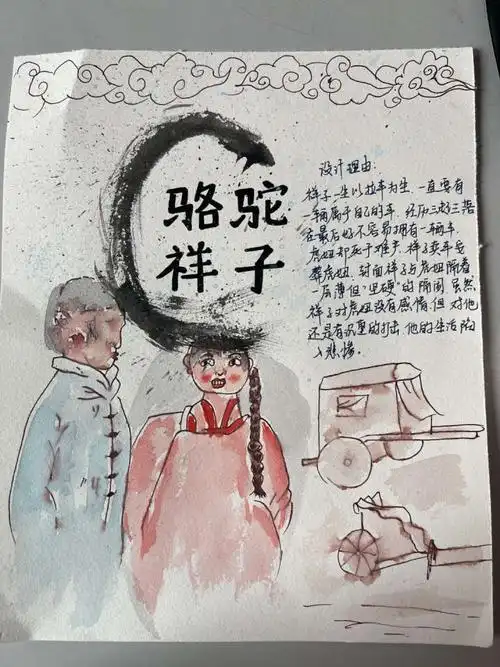 骆驼
祥子
设计理由:
祥子一生以拉车为生.一直要有
一辆属于自己的车.经历三起三落
在最后好不容易拥有一辆车.
虎妞却死于难产.祥子卖车安
葬虎妞.封面祥子与虎妞隔着
一层薄但"坚硬"的隔阂.虽然
祥子对虎妞没有感情.但对他
还是有沉重的打击.他的生活陷
入悲惨.